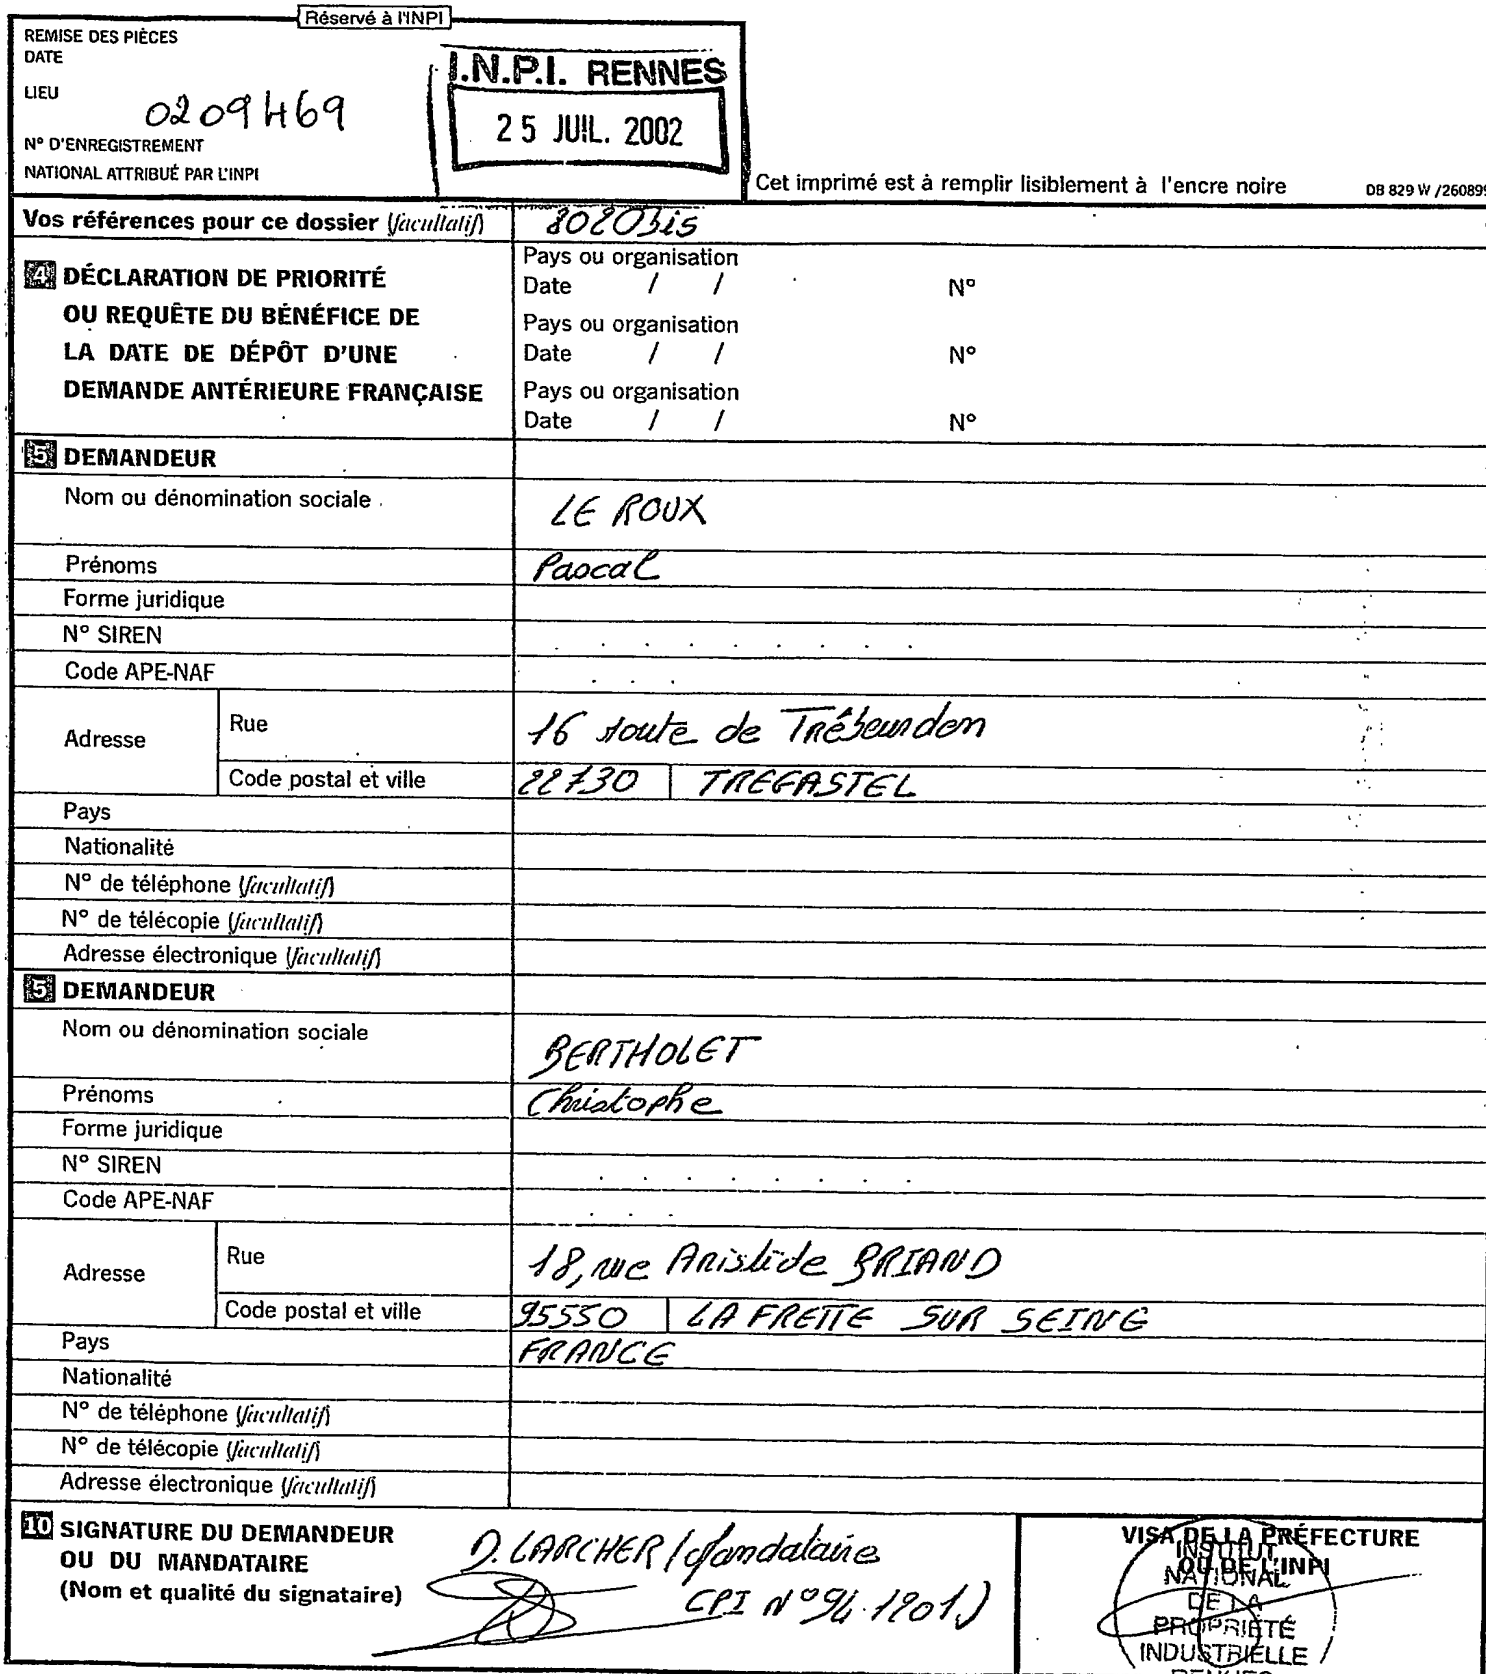 Réservé à l'INPI
REMISE DES PIÈCES
DATE
LIEU
0209469
N° D'ENREGISTREMENT
NATIONAL ATTRIBUÉ PAR L'INPI
I.N.P.I. RENNES
25 JUIL. 2002
Cet imprimé est à remplir lisiblement à l'encre noire
DB 829 W /260899
Vos références pour ce dossier (facultatif)
4 DÉCLARATION DE PRIORITÉ
OU REQUÊTE DU BÉNÉFICE DE
LA DATE DE DÉPÔT D'UNE
DEMANDE ANTÉRIEURE FRANÇAISE
Pays ou organisation
Date / / N°
Pays ou organisation
Date / / N°
Pays ou organisation
Date / / N°
5 DEMANDEUR
Nom ou dénomination sociale LE ROUX
Prénoms Pascal
Forme juridique
N° SIREN
Code APE-NAF
Adresse
Rue 16 route de Trébeurden
Code postal et ville 22730 TREGASTEL
Pays
Nationalité
N° de téléphone (facultatif)
N° de télécopie (facultatif)
Adresse électronique (facultatif)
5 DEMANDEUR
Nom ou dénomination sociale BERTHOLET
Prénoms Christophe
Forme juridique
N° SIREN
Code APE-NAF
Adresse
Rue 18, rue Aristide BRIAND
Code postal et ville 95550 LA FRETTE SUR SEINE
Pays FRANCE
Nationalité
N° de téléphone (facultatif)
N° de télécopie (facultatif)
Adresse électronique (facultatif)
10 SIGNATURE DU DEMANDEUR
OU DU MANDATAIRE
(Nom et qualité du signataire)
D. LARCHER (Mandataire
CPI N° 94.1201)
VISA DE LA PRÉFECTURE
OU DE L'INPI
INSTITUT
NATIONAL
DE LA
PROPRIÉTÉ
INDUSTRIELLE
RENNES